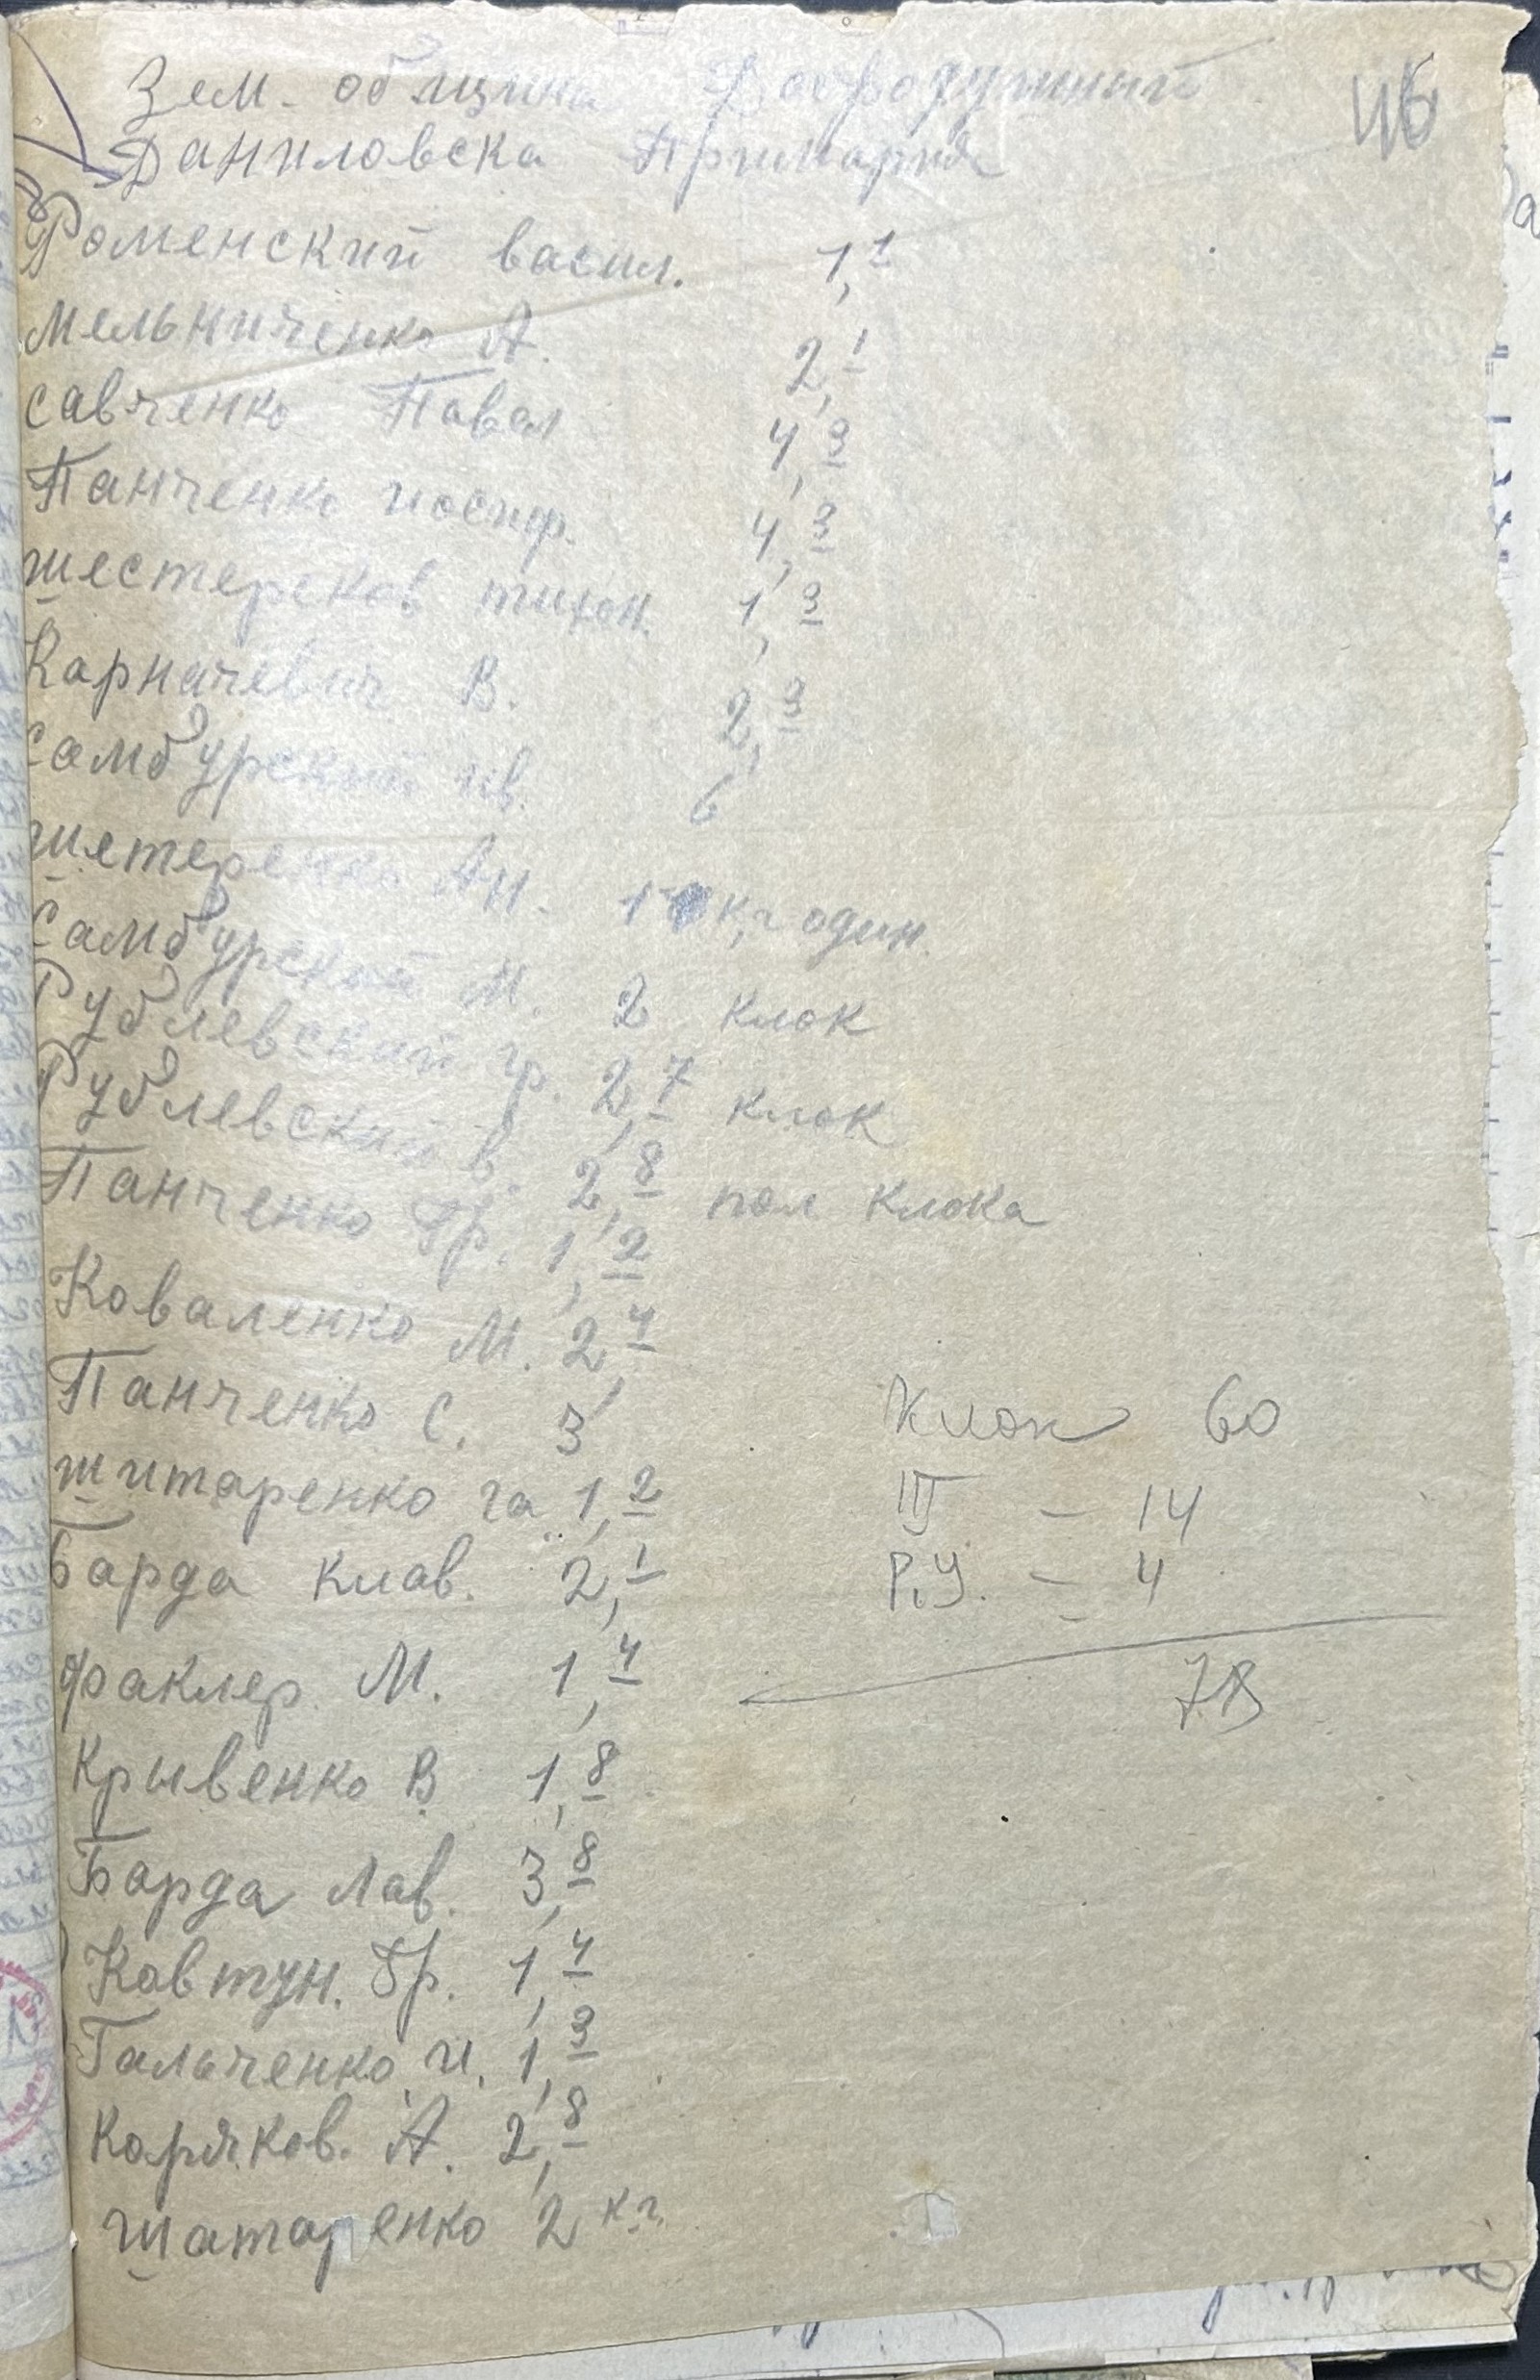 46
Зем. община Добродушный
Даниловска Примария
Роменский васил. 1,1
мельниченко А. 2,1
савченко Павел 4,3
Панченко иосиф. 4,3
шестереков тихон. 1,3
Карначевич В. 2,3
самбурский ив. 6
шетеренко Ан. 1 кг один.
самбурский М. 2 клок
Рублевский гр. 2,7 клок
Рублевский в. 2,8 пол клока
Панченко Гр. 1,2
Коваленко М. 2,4
Панченко С. 3
шитаренко га 1,2
Барда клав. 2,1
факлер М. 1,4
Крывенко В. 1,8
Барда Лав. 3,8
Ковтун. Гр. 1,4
Гальченко и. 1,3
Коряков. А. 2,8
шатаренко 2 кг.
Клок 60
Ш – 14
Р.У. – 4
78